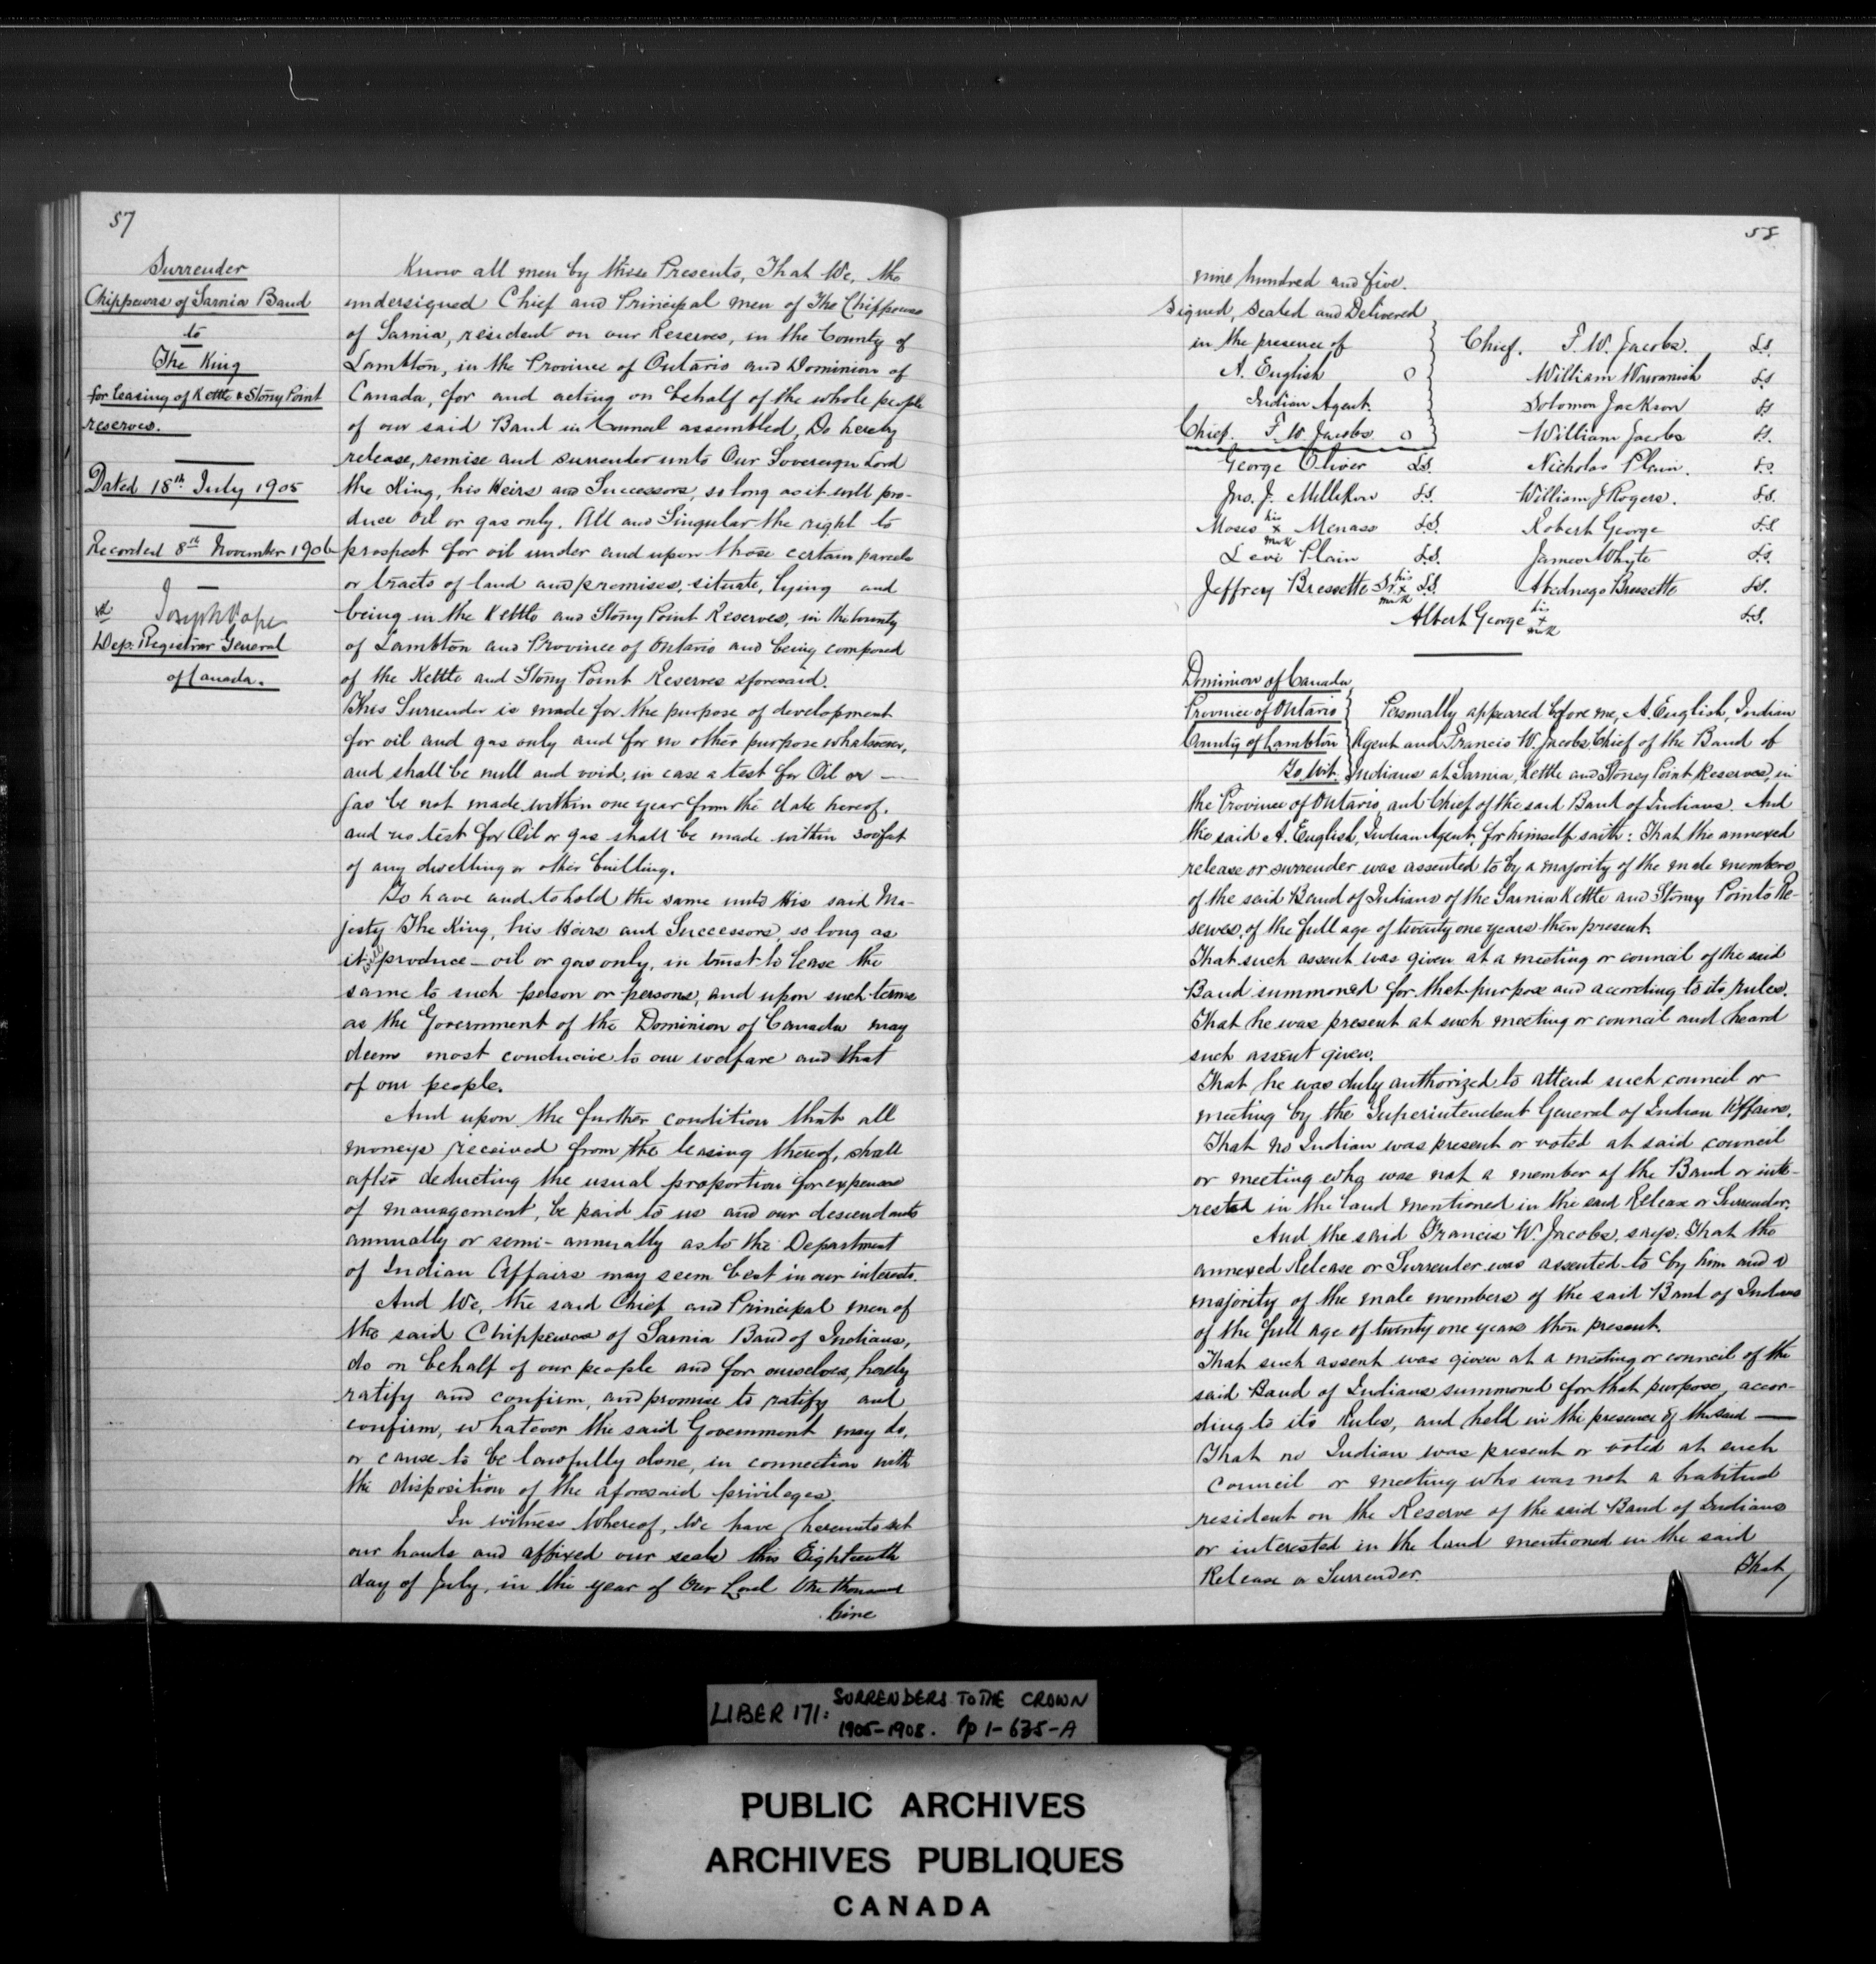 57
Surrender
Chippewas of Sarnia Band
to
The King
for leasing of Kettle & Stony Point
reserves.
Dated 18th July 1905
Recorded 8th November 1906
Joseph Pope
Dep. Registrar General
of Canada.
Know all men by these Presents, That We, the
undersigned Chief and Principal men of The Chippewas
of Sarnia, resident on our Reserves, in the County of
Lambton, in the Province of Ontario and Dominion of
Canada, for and acting on behalf of the whole people
of our said Band in Council assembled, Do hereby
release, remise and surrender unto Our Sovereign Lord
the King, his Heirs and Successors, so long as it will pro-
duce oil or gas only. All and Singular the right to
prospect for oil under and upon those certain parcels
or tracts of land and premises, situate, lying and
being in the Kettle and Stony Point Reserves, in the County
of Lambton and Province of Ontario and being composed
of the Kettle and Stony Point Reserves aforesaid.
This Surrender is made for the purpose of development
for oil and gas only and for no other purpose whatsoever,
and shall be null and void, in case a test for Oil or —
gas be not made within one year from the date hereof.
and no test for Oil or gas shall be made within 300 feet
of any dwelling or other building.
To have and to hold the same unto His said Ma-
jesty The King, his Heirs and Successors, so long as
it produce oil or gas only, in trust to lease the
same to such person or persons, and upon such terms
as the Government of the Dominion of Canada may
deem most conducive to our welfare and that
of our people.
And upon the further condition that all
moneys received from the leasing thereof, shall
after deducting the usual proportion for expenses
of management, be paid to us and our descendants
annually or semi-annually as to the Department
of Indian Affairs may seem best in our interests.
And We, the said Chief and Principal men of
the said Chippewas of Sarnia Band of Indians,
do on behalf of our people and for ourselves, hereby
ratify and confirm, and promise to ratify and
confirm, whatever the said Government may do,
or cause to be lawfully done, in connection with
the disposition of the aforesaid privileges.
In witness Whereof, We have hereunto set
our hands and affixed our seals this Eighteenth
day of July, in the year of Our Lord One thousand
nine
58
nine hundred and five.
Signed, Sealed and Delivered
in the presence of
A. English O
Indian Agent.
Chief. F. W. Jacobs O
George Oliver L.S.
Jno. J. Milliken L.S.
Moses his x mark Menass L.S.
Levi Plain L.S.
Jeffrey Bressette Sr. his x mark L.S.
Chief. F. W. Jacobs. L.S.
William Wawanosh L.S.
Solomon Jackson L.S.
William Jacobs L.S.
Nicholas Plain. L.S.
William J Rogers. L.S.
Robert George L.S.
James Whyte L.S.
Abednego Bressette L.S.
Albert George his x mark L.S.
Dominion of Canada
Province of Ontario
County of Lambton
To Wit.
Personally appeared before me, A. English, Indian
Agent and Francis W. Jacobs, Chief of the Band of
Indians at Sarnia, Kettle and Stoney Point Reserves, in
the Province of Ontario, and Chief of the said Band of Indians. And
the said A. English, Indian Agent, for himself saith: That the annexed
release or surrender was assented to by a majority of the male members
of the said Band of Indians of the Sarnia Kettle and Stoney Points Re-
serves, of the full age of twenty one years then present.
That such assent was given at a meeting or council of the said
Band summoned for that purpose and according to its rules.
That he was present at such meeting or council and heard
such assent given.
That he was duly authorized to attend such council or
meeting by the Superintendent General of Indian Affairs.
That no Indian was present or voted at said council
or meeting who was not a member of the Band or inte-
rested in the land mentioned in the said Release or Surrender.
And the said Francis W. Jacobs, says: That the
annexed Release or Surrender was assented to by him and a
majority of the male members of the said Band of Indians
of the full age of twenty one years then present.
That such assent was given at a meeting or council of the
said Band of Indians summoned for that purpose, accor-
ding to its Rules, and held in the presence of the said —
That no Indian was present or voted at such
council or meeting who was not a habitual
resident on the Reserve of the said Band of Indians
or interested in the land mentioned in the said
Release or Surrender.
That/
LIBER 171: SURRENDERS TO THE CROWN
1905-1908. Pp 1-635-A
PUBLIC ARCHIVES
ARCHIVES PUBLIQUES
CANADA